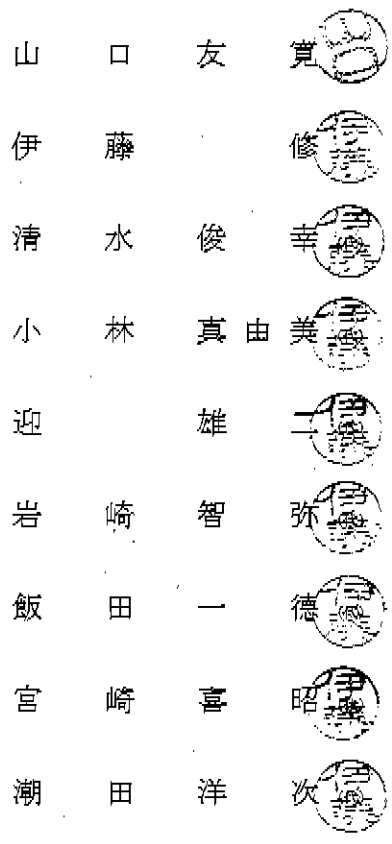 山口友寛
伊藤修
清水俊幸
小林真由美
迎雄二
岩崎智弥
飯田一徳
宮崎喜昭
潮田洋次